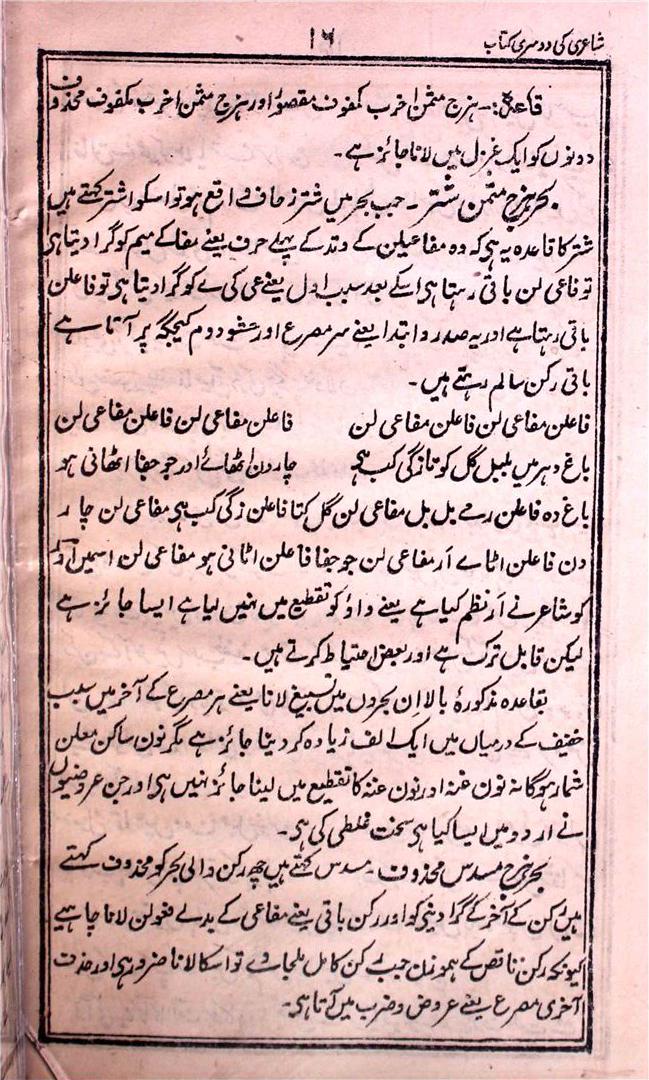 شاعری کی دوسری کتاب
۱۶
قاعدہ:- ہزج مثمن اخرب مکفوف مقصور اور ہزج مثمن اخرب مکفوف محذوف
دونوں کو ایک غزل میں لانا جائز ہے۔
بحر ہزج مثمن شتر۔ جب بحر میں شتر زحاف واقع ہو تو اسکو اشتر کہتے ہیں
شتر کا قاعدہ یہ ہی کہ وہ مفاعیلن کے وتد کے پہلے حرف یعنے مفا کے میم کو گرا دیتا ہی
تو فاعی لن باقی رہتا ہی اسکے بعد سبب اول یعنے عی کی ے کو گرا دیتا ہی تو فاعلن
باقی رہتا ہے اور یہ صدر و ابتدا یعنے سر مصرع اور حشو دوم کیجگہ پر آتا ہے
باقی رکن سالم رہتے ہیں۔
فاعلن مفاعی لن فاعلن مفاعی لن فاعلن مفاعی لن فاعلن مفاعی لن
باغ دہر میں بلبل گل کو تازگی کب ہی چار دن اٹھائے اور جو جفا اٹھانی ہو
باغ دہ فاعلن رمے بل بل مفاعی لن گل کتا فاعلن زگی کب ہی مفاعی لن چار
دن فاعلن اٹاے اَر مفاعی لن جو جفا فاعلن اٹانی ہو مفاعی لن اسمیں اور
کو شاعر نے اَر نظم کیا ہے یعنے واؤ کو تقطیع میں نہیں لیا ہے ایسا جائز ہے
لیکن قابل ترک ہے اور بعض احتیاط کرتے ہیں۔
بقاعدہ مذکورۂ بالا اِن بحروں میں تسبیغ لانا یعنے ہر مصرع کے آخر میں سبب
خفیف کے درمیاں میں ایک الف زیادہ کر دینا جائز ہے مگر نون ساکن معلن
شمار ہوگا نہ نون غنہ اور نون غنہ کا تقطیع میں لینا جائز نہیں ہی اور جن عروضیوں
نے اردو میں ایسا کیا ہی سخت غلطی کی ہی۔
بحر ہزج مسدس محذوف۔ مسدس کہتے ہیں چھ رکن والی بحر کو محذوف کہتے
ہیں رکن کے آخر کے گرا دینی کو اور رکن باقی یعنے مفاعی کے بدلے فعولن لانا چاہیے
کیونکہ رکن ناقص کے ہموزن جب رکن کامل ملجاوے تو اسکا لانا ضرور ہی اور حذف
آخری مصرع یعنے عروض و ضرب میں آتا ہی۔